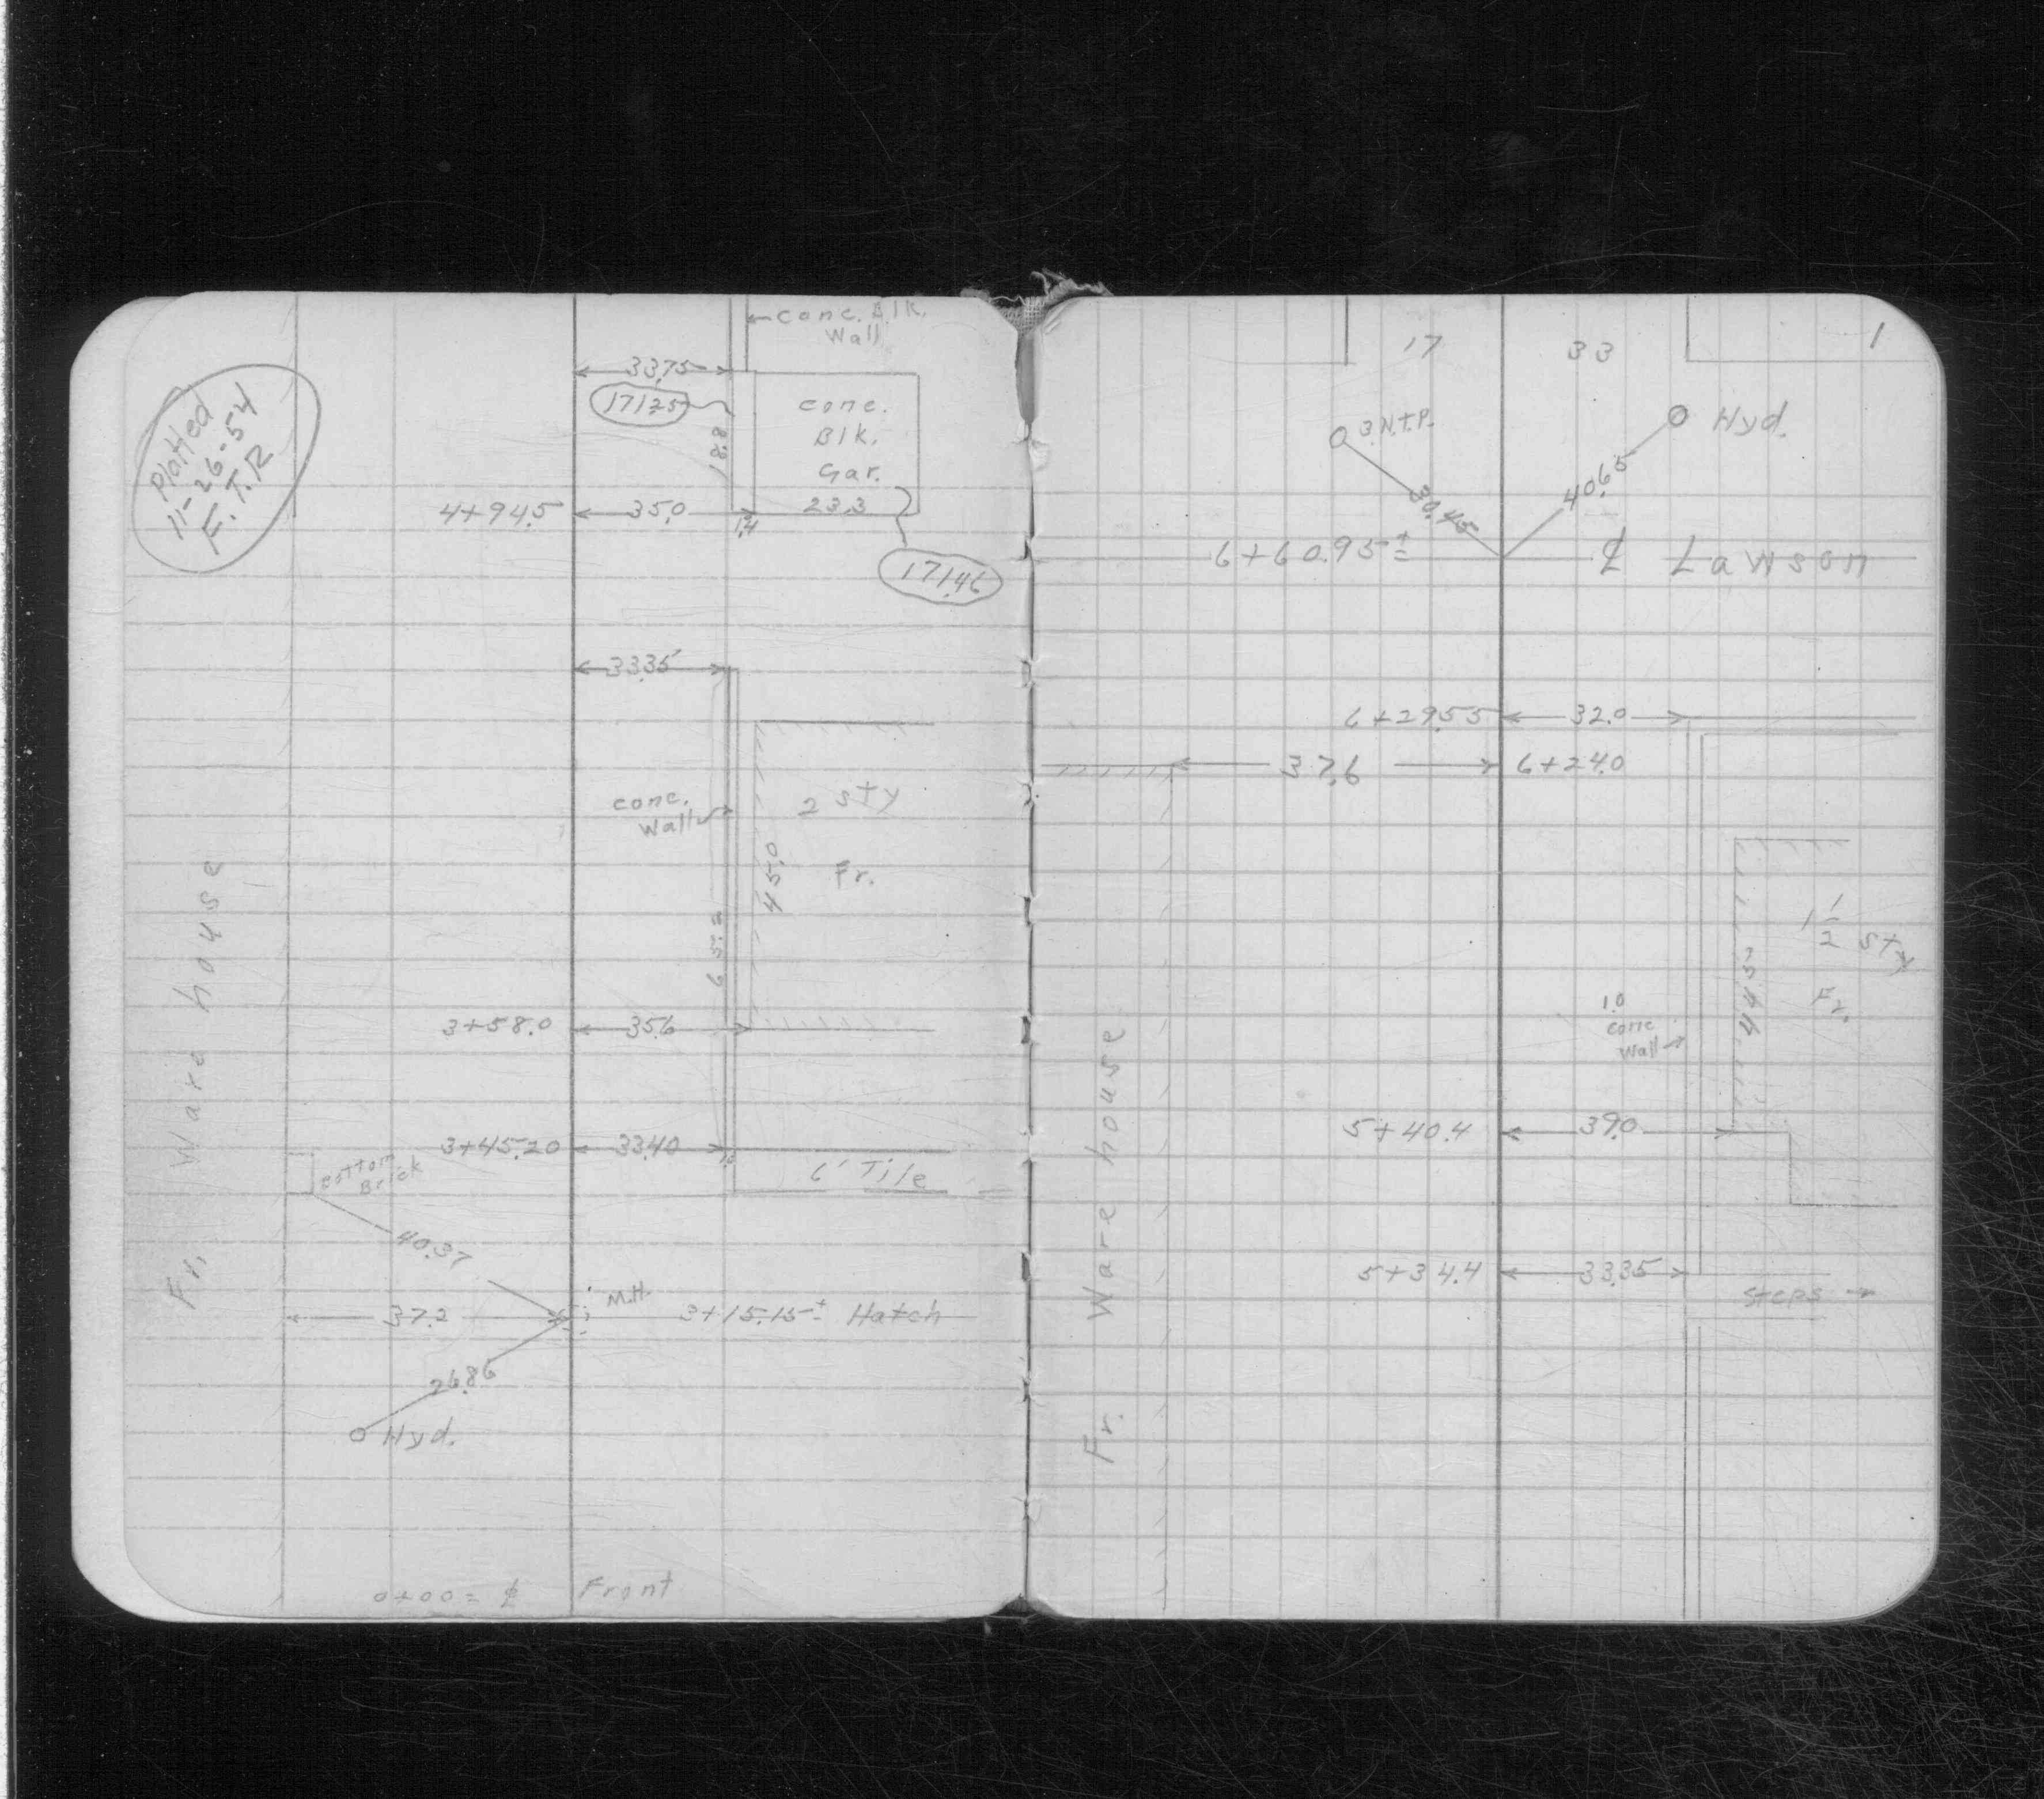 Plotted
11-26-54
E.T.R
conc. Blk.
Wall
33.75
171.25
18.8
conc.
Blk.
Gar.
23.3
4+94.5
35.0
1.4
171.46
33.35
conc.
Wall
2 sty
Fr.
45.0
65.2
3+58.0
35.6
3+45.20
33.40
6' Tile
Bottom
Brick
40.37
M.H.
37.2
3+15.15± Hatch
26.86
Hyd.
Fr. Ware house
0+00 = ℄ Front
1
17
33
3.N.T.P.
Hyd.
30.45
40.65
6+60.95±
℄ Lawson
6+29.55
32.0
37.6
6+24.0
1 1/2 sty
Fr.
44.5
1.0
conc
Wall
5+40.4
39.0
5+34.4
33.35
Steps
Fr. Ware house